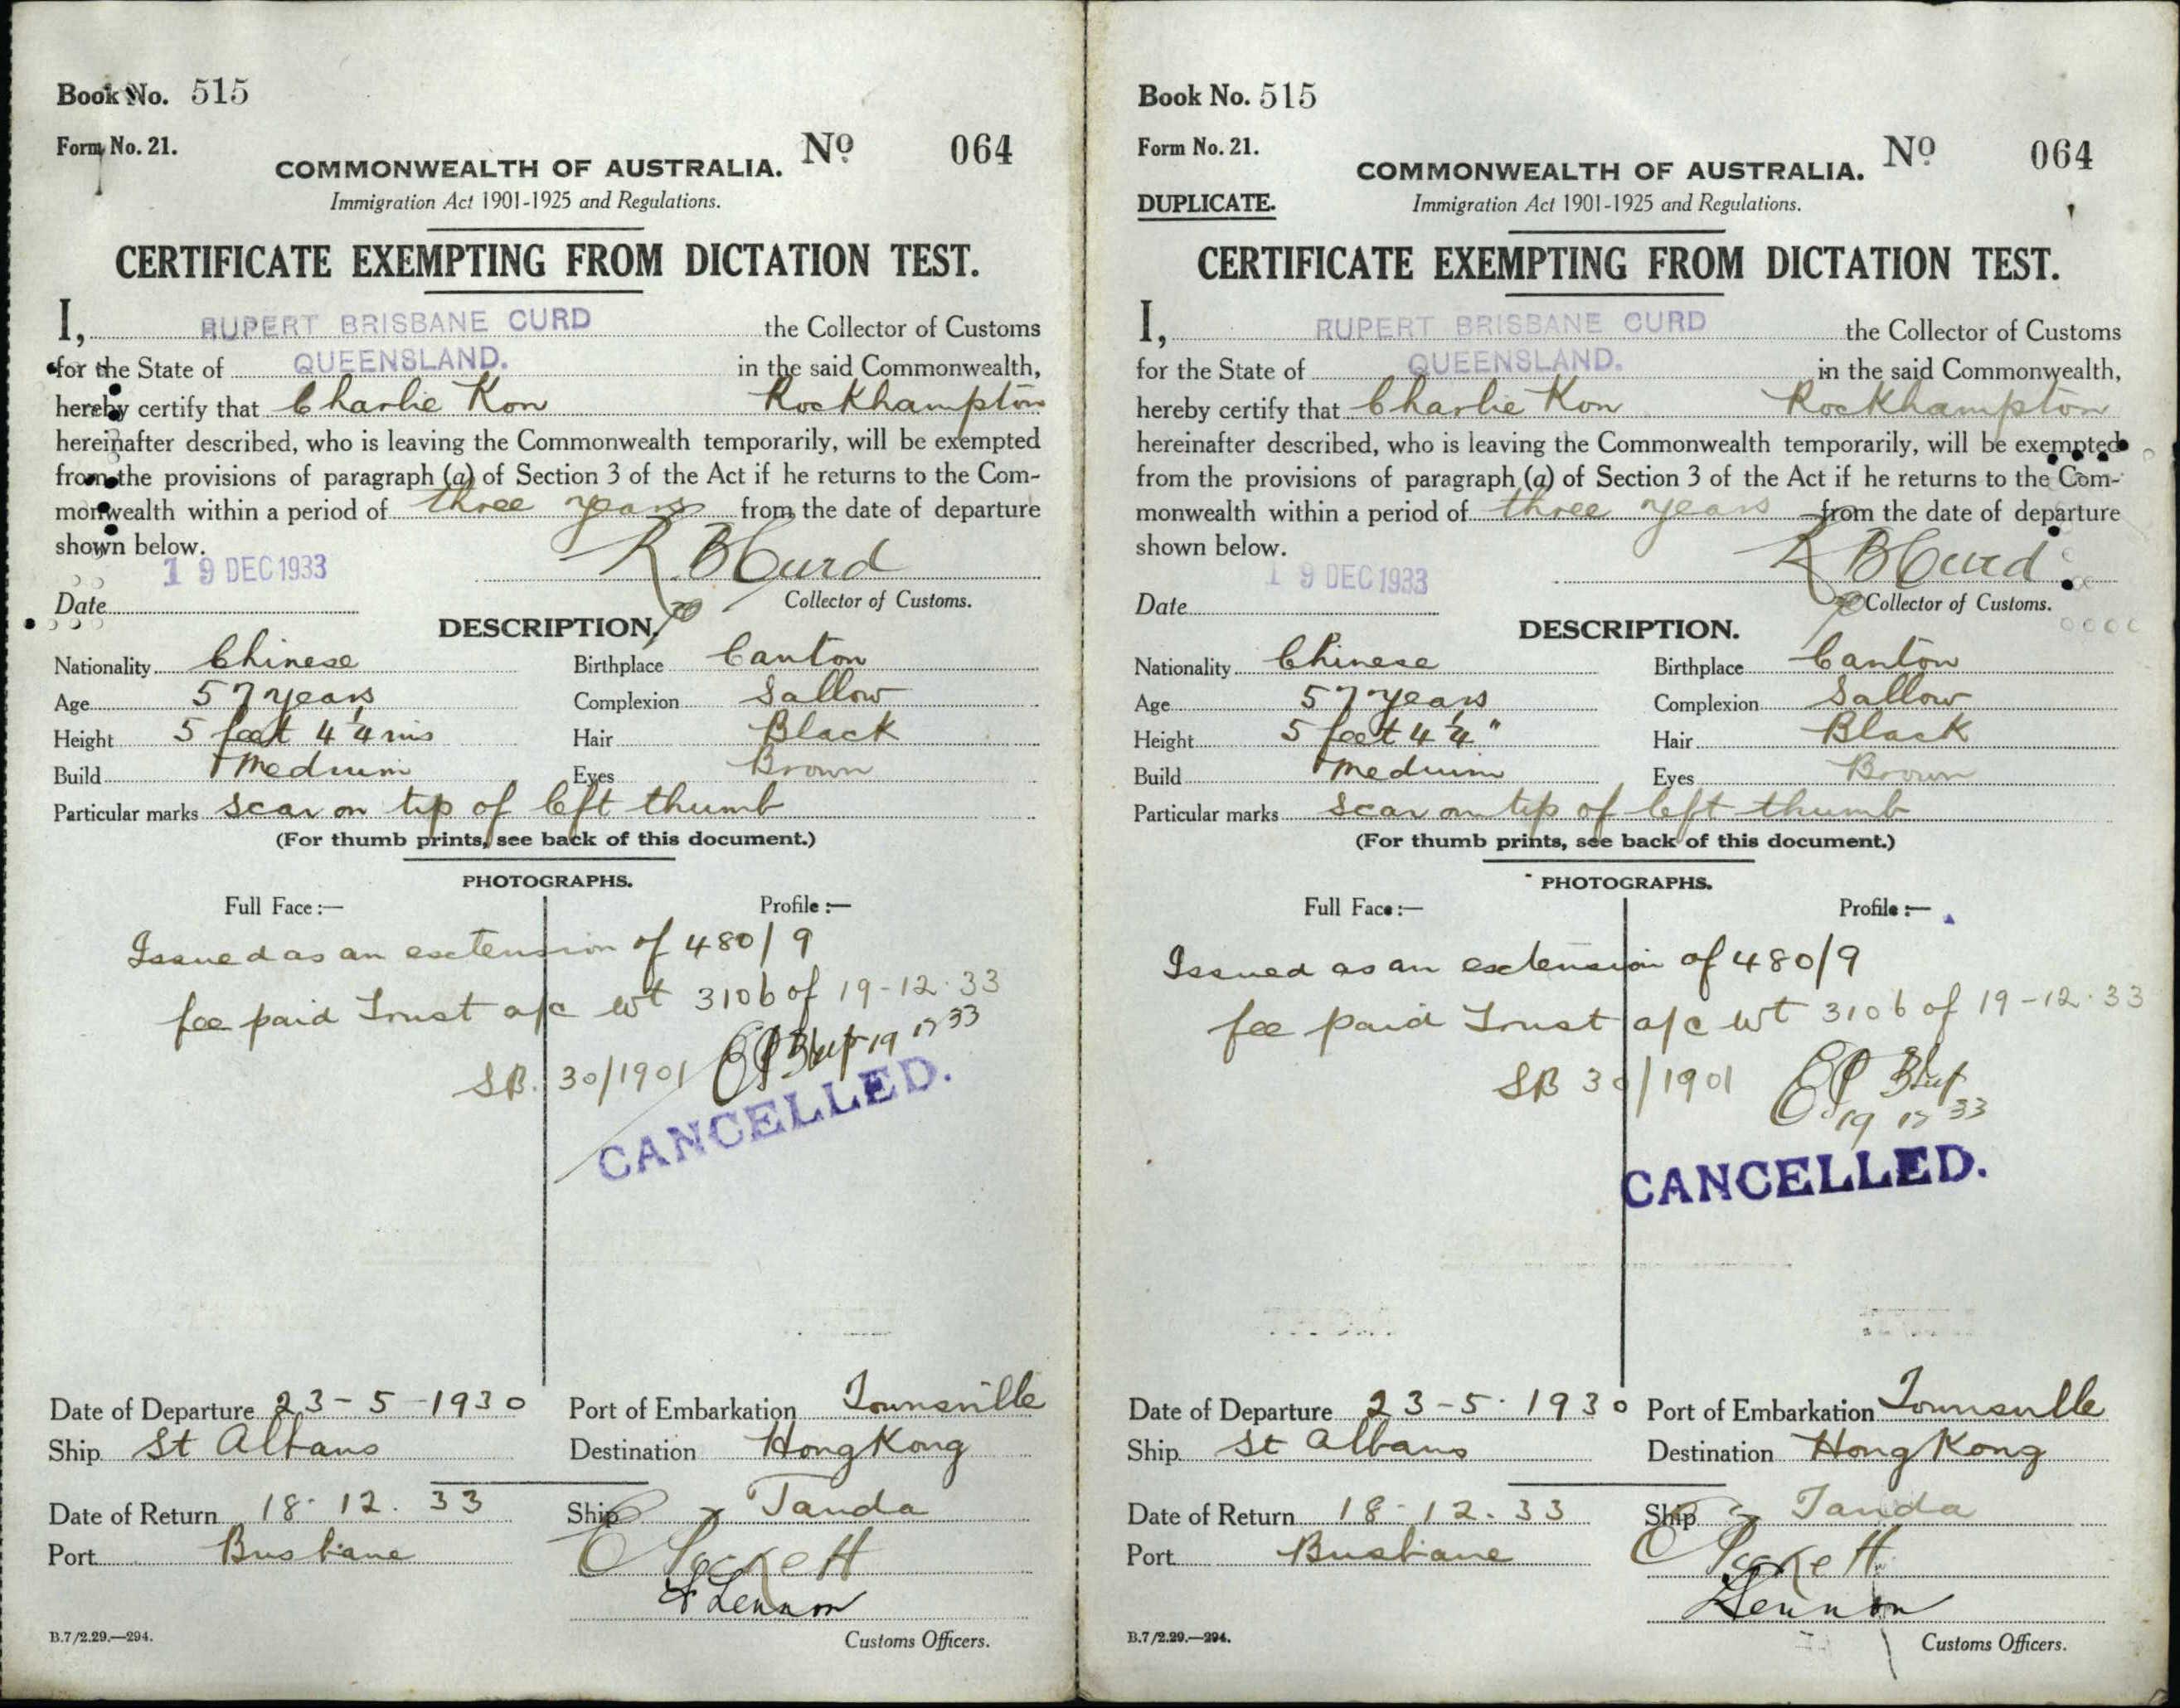 Book No. 515
Form No. 21.
No 064
COMMONWEALTH OF AUSTRALIA.
Immigration Act 1901-1925 and Regulations.
CERTIFICATE EXEMPTING FROM DICTATION TEST.
I, RUPERT BRISBANE CURD the Collector of Customs
for the State of QUEENSLAND. in the said Commonwealth,
hereby certify that Charlie Kon Rockhampton
hereinafter described, who is leaving the Commonwealth temporarily, will be exempted
from the provisions of paragraph (a) of Section 3 of the Act if he returns to the Com-
monwealth within a period of three years from the date of departure
shown below.
R B Curd
19 DEC 1933
Date
Collector of Customs.
DESCRIPTION.
Nationality Chinese Birthplace Canton
Age 57 years Complexion Sallow
Height 5 feet 4 1/4 ins Hair Black
Build Medium Eyes Brown
Particular marks scar on tip of left thumb
(For thumb prints, see back of this document.)
PHOTOGRAPHS.
Full Face :— Profile :—
Issued as an extension of 480/9
fee paid Trust a/c Wt 3106 of 19-12-33
SB. 30/1901 19 12 33
CANCELLED.
Date of Departure 23-5-1930 Port of Embarkation Townsville
Ship St Albans Destination Hong Kong
Date of Return 18.12.33 Ship Tanda
Port Brisbane
Lennon
B.7/2.29.—294.
Customs Officers.
Book No. 515
Form No. 21.
No 064
COMMONWEALTH OF AUSTRALIA.
DUPLICATE.
Immigration Act 1901-1925 and Regulations.
CERTIFICATE EXEMPTING FROM DICTATION TEST.
I, RUPERT BRISBANE CURD the Collector of Customs
for the State of QUEENSLAND. in the said Commonwealth,
hereby certify that Charlie Kon Rockhampton
hereinafter described, who is leaving the Commonwealth temporarily, will be exempted
from the provisions of paragraph (a) of Section 3 of the Act if he returns to the Com-
monwealth within a period of three years from the date of departure
shown below.
R B Curd
19 DEC 1933
Date
Collector of Customs.
DESCRIPTION.
Nationality Chinese Birthplace Canton
Age 57 years Complexion Sallow
Height 5 feet 4 1/4" Hair Black
Build Medium Eyes Brown
Particular marks scar on tip of left thumb
(For thumb prints, see back of this document.)
PHOTOGRAPHS.
Full Face :— Profile :—
Issued as an extension of 480/9
fee paid Trust a/c Wt 3106 of 19-12-33
SB 30/1901
19 12 33
CANCELLED.
Date of Departure 23-5-1930 Port of Embarkation Townsville
Ship St Albans Destination Hong Kong
Date of Return 18.12.33 Ship Tanda
Port Brisbane
Lennon
B.7/2.29.—294.
Customs Officers.